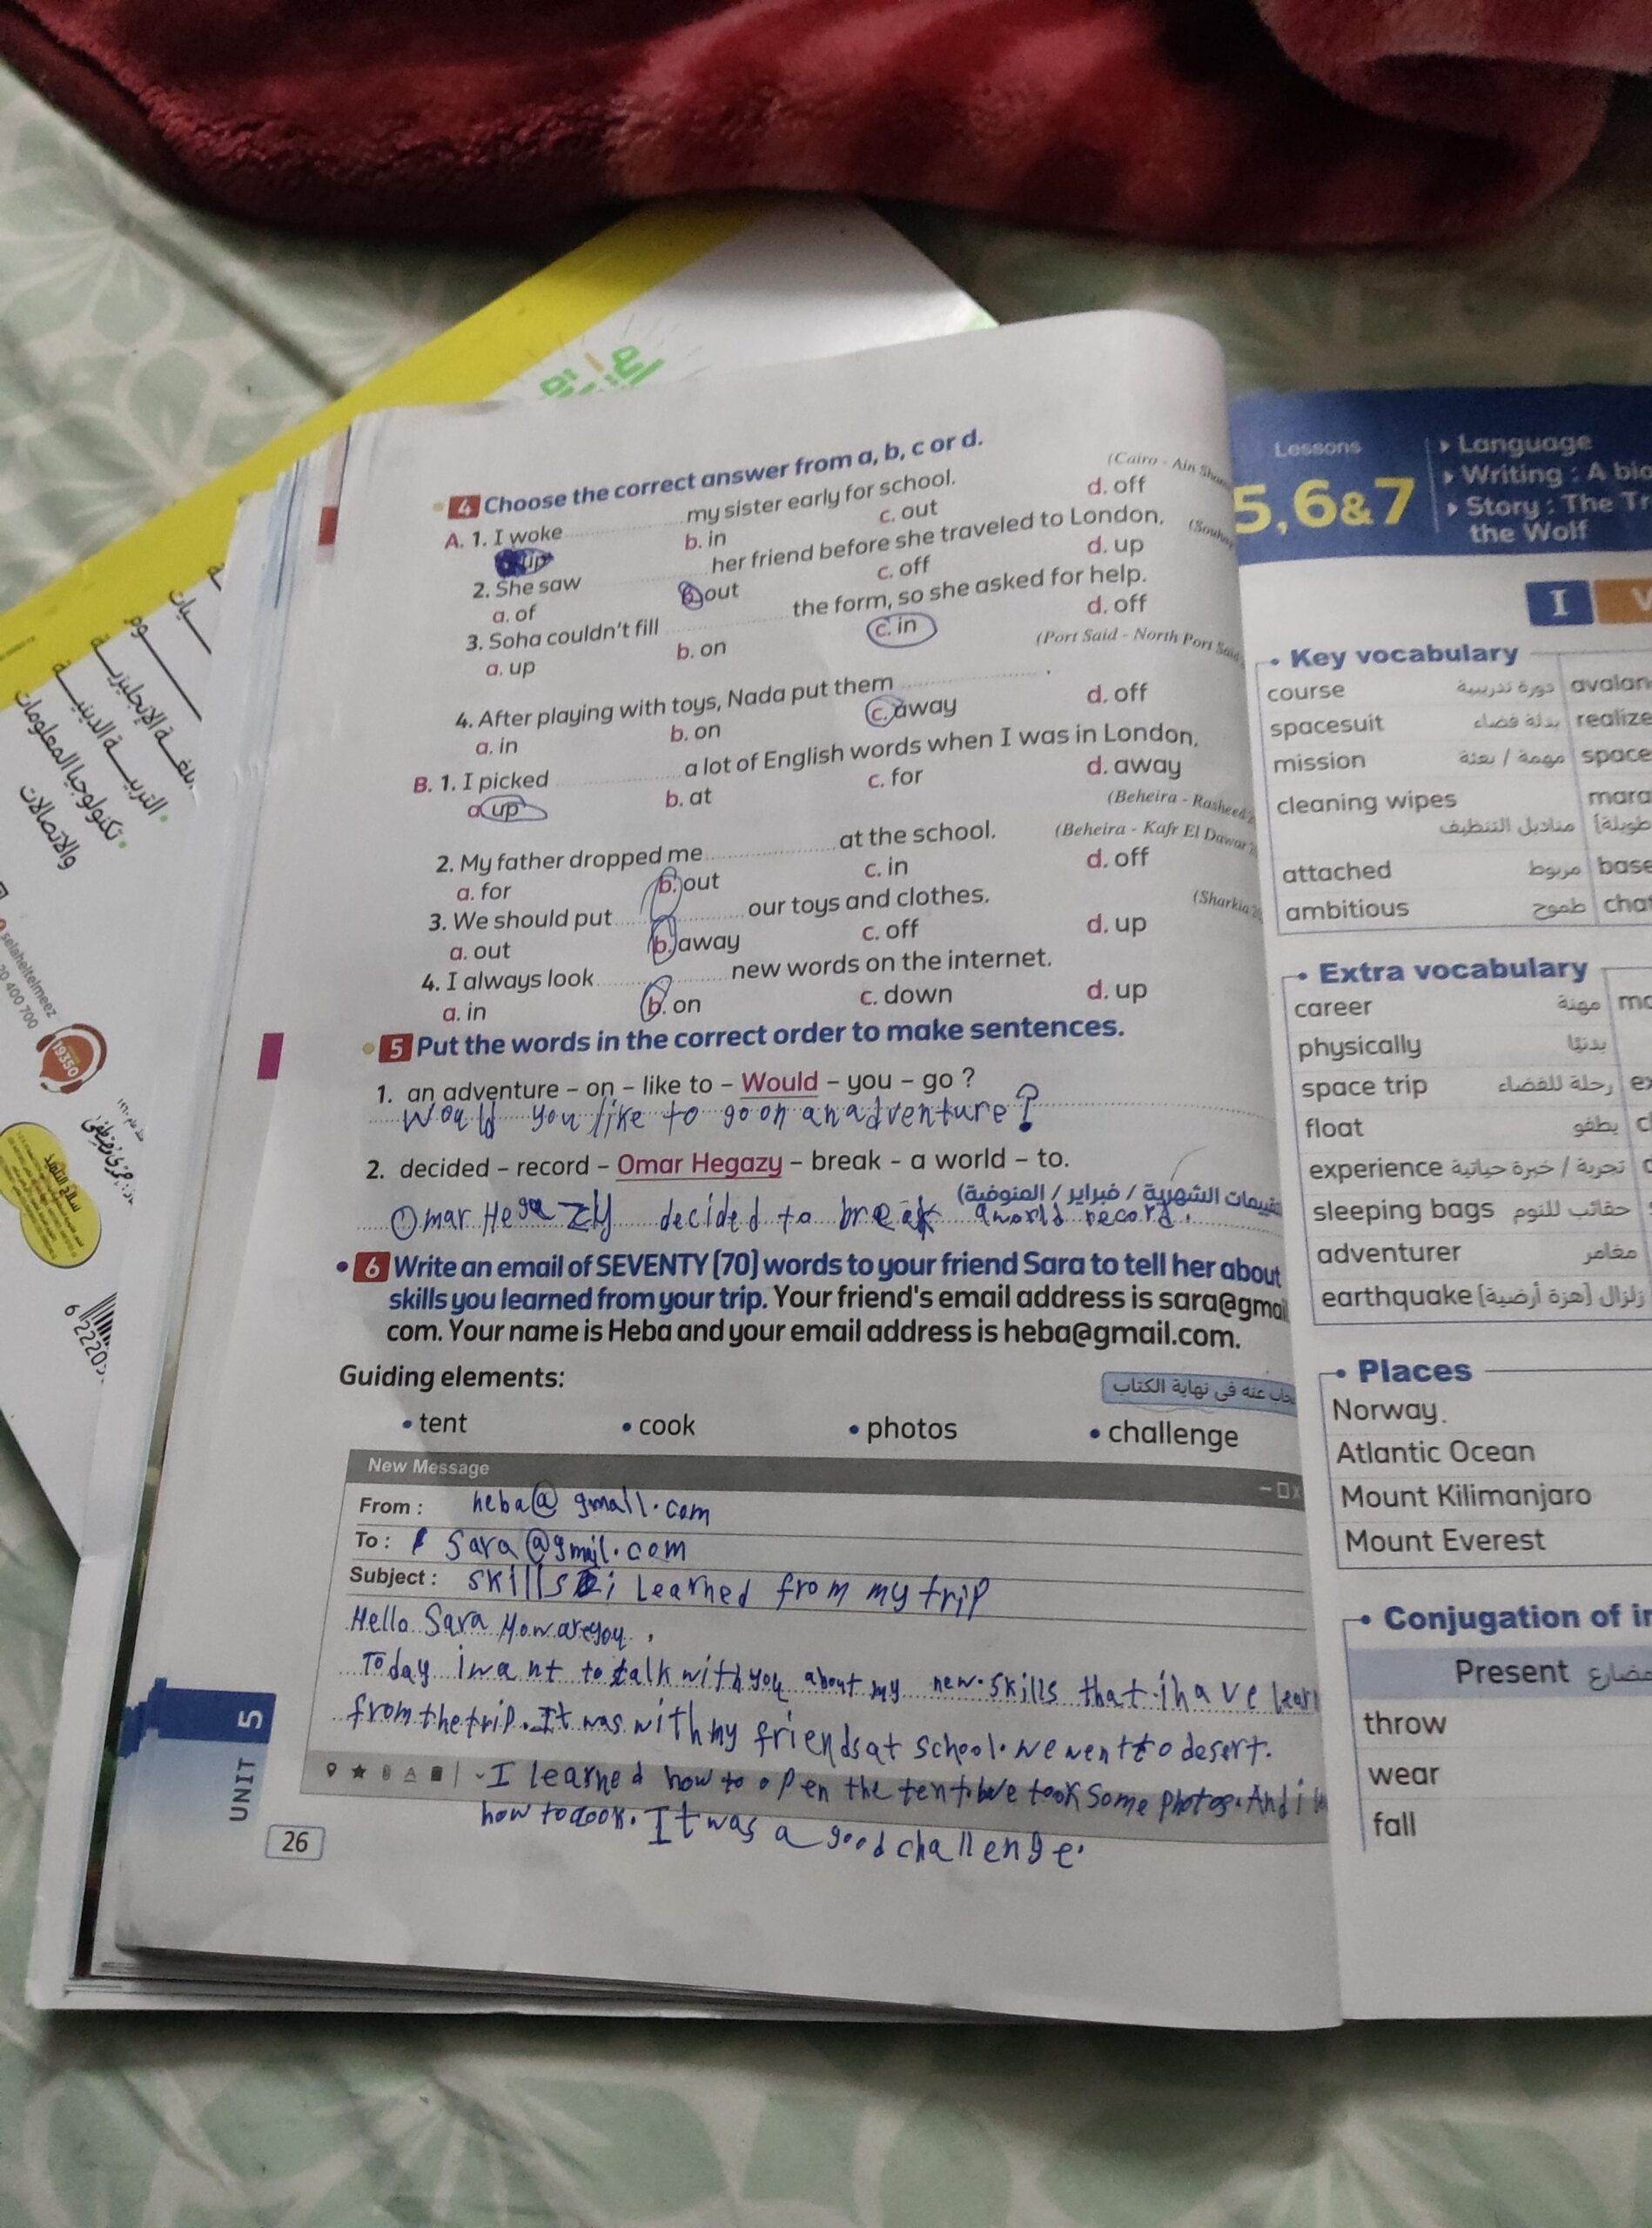 4 Choose the correct answer from a, b, c or d.
(Cairo - Ain
A. 1. I woke my sister early for school.
up b. in c. out d. off
2. She saw her friend before she traveled to London.
a. of b. out c. off d. up
3. Soha couldn't fill the form, so she asked for help.
a. up b. on c. in d. off
(Port Said - North Port
4. After playing with toys, Nada put them .
a. in b. on c. away d. off
B. 1. I picked a lot of English words when I was in London.
a. up b. at c. for d. away
(Beheira -
2. My father dropped me at the school. (Beheira - Kafr El Dawar
a. for b. out c. in d. off
3. We should put our toys and clothes. (Sharkia
a. out b. away c. off d. up
4. I always look new words on the internet.
a. in b. on c. down d. up
5 Put the words in the correct order to make sentences.
1. an adventure – on – like to – Would – you – go ?
Would you like to go on an adventure?
2. decided – record – Omar Hegazy – break – a world – to.
الشهرية / فبراير / المنوفية)
Omar Hegazy decided to break a world record.
6 Write an email of SEVENTY (70) words to your friend Sara to tell her about
skills you learned from your trip. Your friend's email address is
com. Your name is Heba and your email address is heba@gmail.com.
Guiding elements:
عنه فى نهاية الكتاب
• tent • cook • photos • challenge
New Message
From : heba@gmall.com
To : Sara@gmil.com
Subject : skills i Learned from my trip
Hello Sara How are you.
Today i want to talk with you about my new skills that i have
from the trip. It was with my friends at school. we went to desert.
I learned how to open the tent. we took some photos. And i
how to cook. It was a good challenge.
UNIT 5
26
Lessons
5,6&7
Language
Writing : A
Story : The
the Wolf
I
• Key vocabulary
course دورة تدريبية
spacesuit بدلة فضاء realize
mission مهمة / بعثة space
cleaning wipes
مناديل التنظيف
attached مربوط base
ambitious طموح
• Extra vocabulary
career مهنة
physically بدنيًا
space trip رحلة للفضاء
float يطفو
experience تجربة / خبرة حياتية
sleeping bags حقائب للنوم
adventurer مغامر
earthquake زلزال (هزة أرضية)
• Places
Norway.
Atlantic Ocean
Mount Kilimanjaro
Mount Everest
• Conjugation of
Present مضارع
throw
wear
fall
تكنولوجيا المعلومات
والاتصالات
selaheltelmeez
19350
سلاح التلميذ